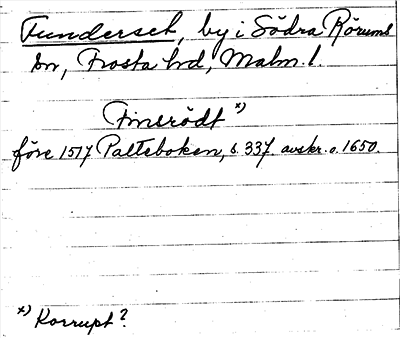 Funderset, by i Södra Rörums
sn, Frosta hd, Malm. l.
Finsrödt *)
före 1517 Palteboken, s. 337. avskr. o. 1650.
*) Korrupt?